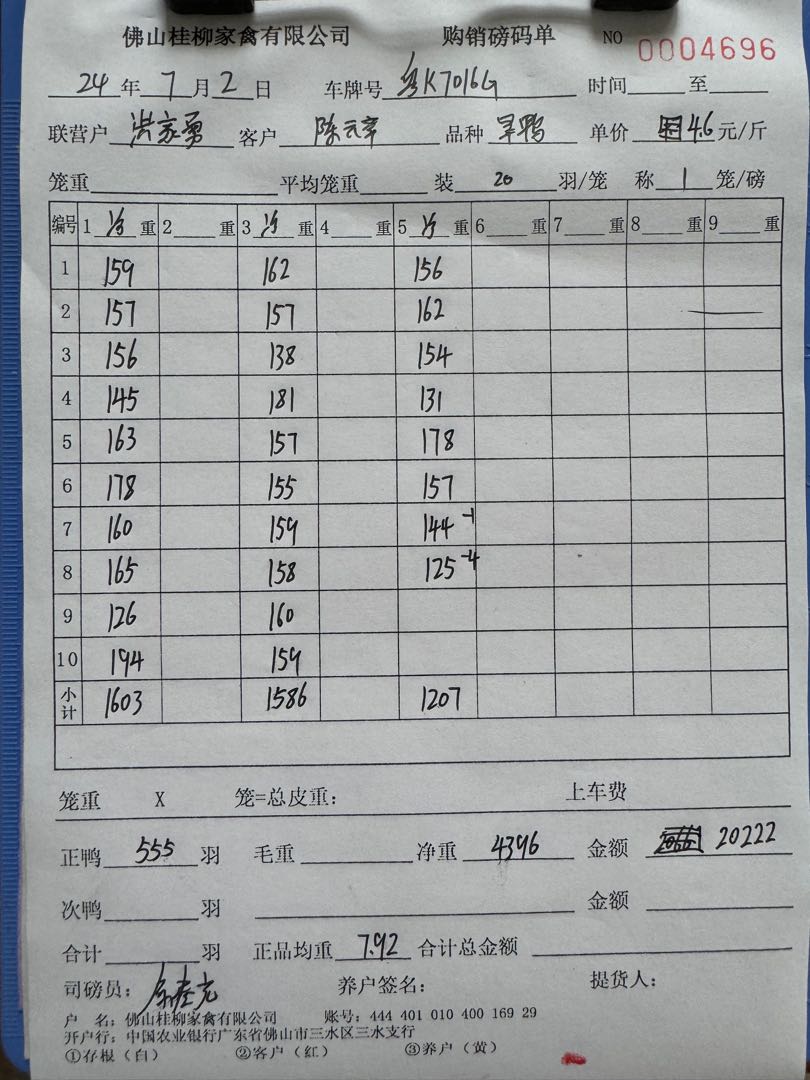 佛山桂柳家禽有限公司 购销磅码单 NO 0004696
24 年 7 月 2 日 车牌号 粤K7016G 时间 至
联营户 洪家勇 客户 陈元章 品种 旱鸭 单价 4.6 元/斤
笼重 平均笼重 装 20 羽/笼 称 1 笼/磅
编号 1 净 重 2 重 3 净 重 4 重 5 净 重 6 重 7 重 8 重 9 重
1 159 162 156
2 157 157 162
3 156 138 154
4 145 181 131
5 163 157 178
6 178 155 157
7 160 159 144 -1
8 165 158 125 -4
9 126 160
10 194 159
小计 1603 1586 1207
笼重 X 笼=总皮重: 上车费
正鸭 555 羽 毛重 净重 4396 金额 20222
次鸭 羽 金额
合计 羽 正品均重 7.92 合计总金额
司磅员: 养户签名: 提货人:
户 名: 佛山桂柳家禽有限公司 账号: 444 401 010 400 169 29
开户行: 中国农业银行广东省佛山市三水区三水支行
①存根（白） ②客户（红） ③养户（黄）